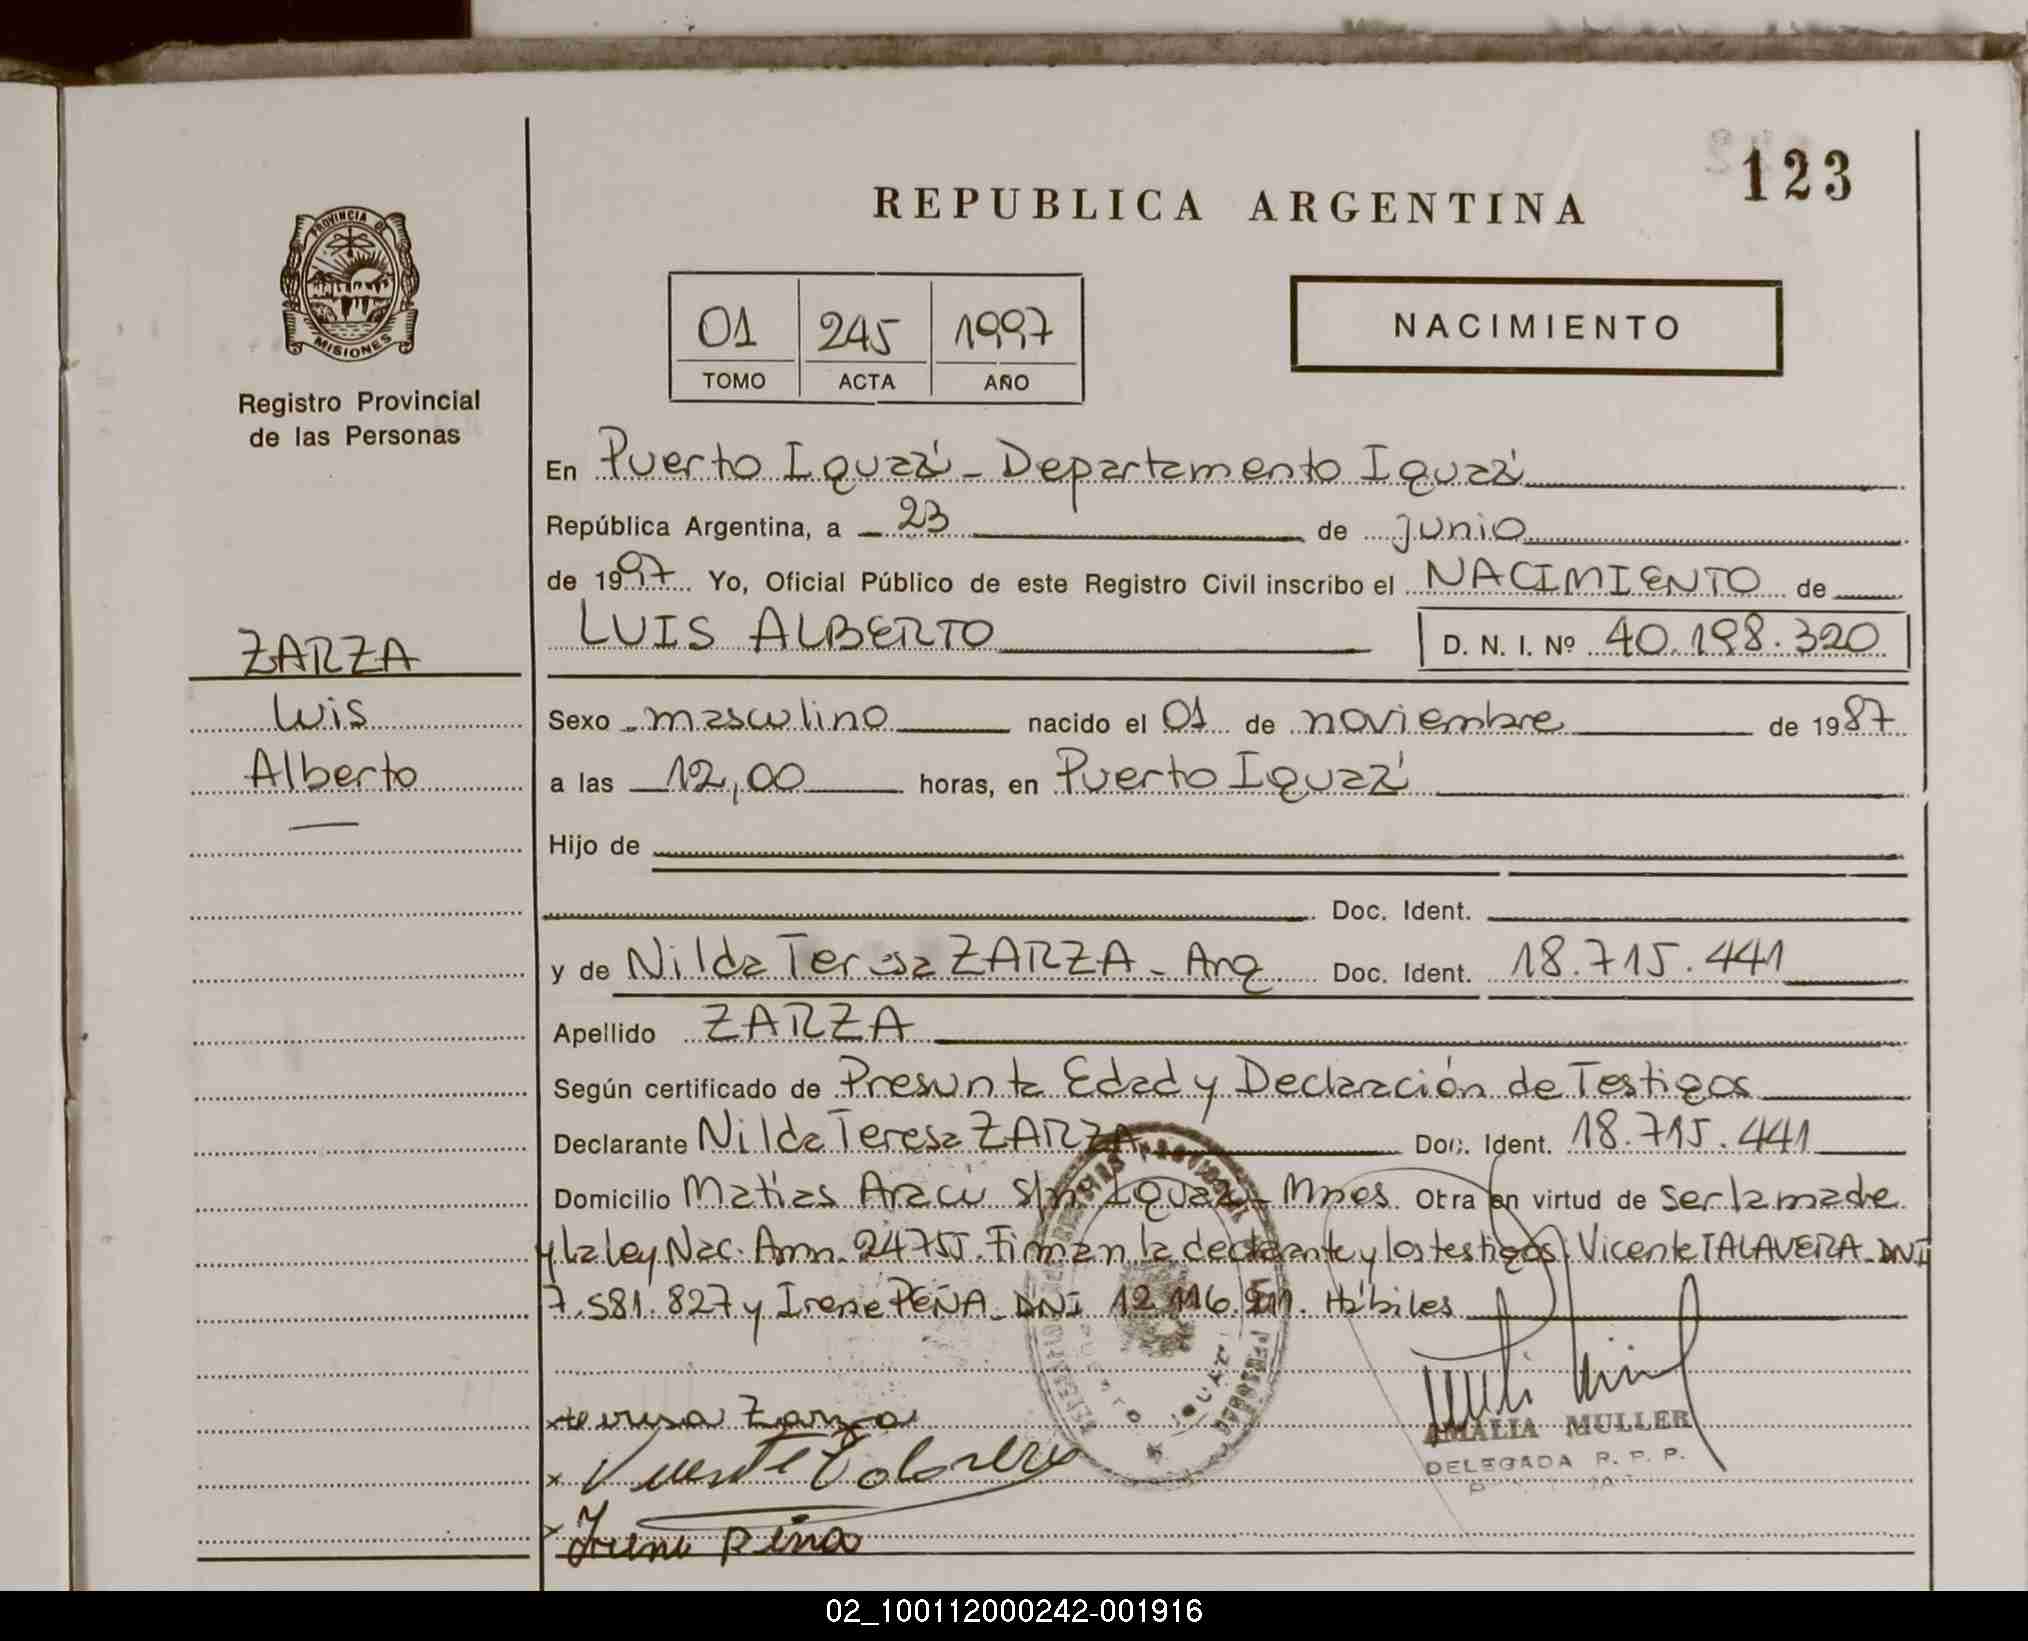 123
REPUBLICA ARGENTINA
PROVINCIA DE
MISIONES
Registro Provincial
de las Personas
01 245 1997
TOMO ACTA AÑO
NACIMIENTO
En Puerto Iguazú - Departamento Iguazú
República Argentina, a 23 de junio
de 1997 Yo, Oficial Público de este Registro Civil inscribo el NACIMIENTO de
LUIS ALBERTO D. N. I. Nº 40.198.320
ZARZA
Luis
Alberto
Sexo masculino nacido el 01 de noviembre de 1987
a las 12,00 horas, en Puerto Iguazú
Hijo de
Doc. Ident.
y de Nilda Teresa ZARZA - Arg Doc. Ident. 18.715.441
Apellido ZARZA
Según certificado de Presunta Edad y Declaración de Testigos
Declarante Nilda Teresa ZARZA Doc. Ident. 18.715.441
Domicilio Matias Aracu s/n Iguazú - Mnes. Obra en virtud de ser la madre
y la ley Nac. Amn. 24755. Firman la declarante y los testigos: Vicente TALAVERA - DNI
7.581.827 y Irene PEÑA - DNI 12.116. Hábiles
teresa Zarza
Vicente Talavera
Irene Peña
AMALIA MULLER
DELEGADA R. P. P.
02_100112000242-001916